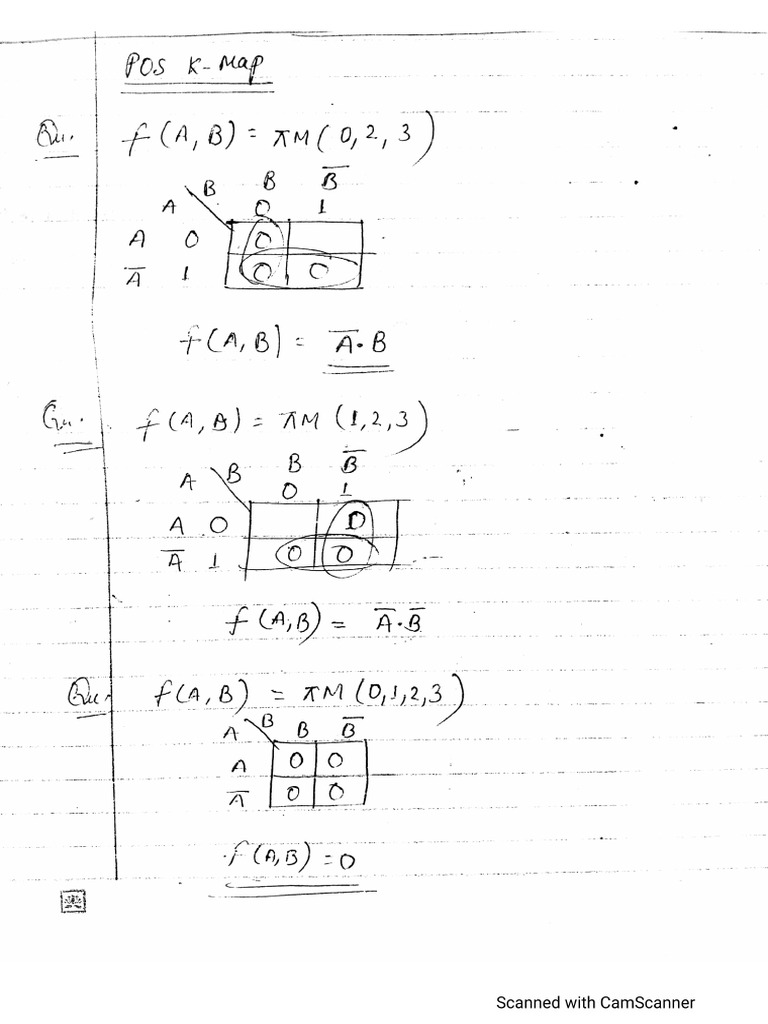 POS K-Map
Qu. f(A, B) = πM(0, 2, 3)
B B B̅
A 0 1
A 0 0
A̅ 1 0 0
f(A, B) = A̅·B
Qu. f(A, B) = πM(1, 2, 3)
A B B B̅
0 1
A 0 0
A̅ 1 0 0
f(A,B) = A̅·B̅
Qu. f(A, B) = πM(0,1,2,3)
A B B B̅
A 0 0
A̅ 0 0
f(A,B) = 0
Scanned with CamScanner